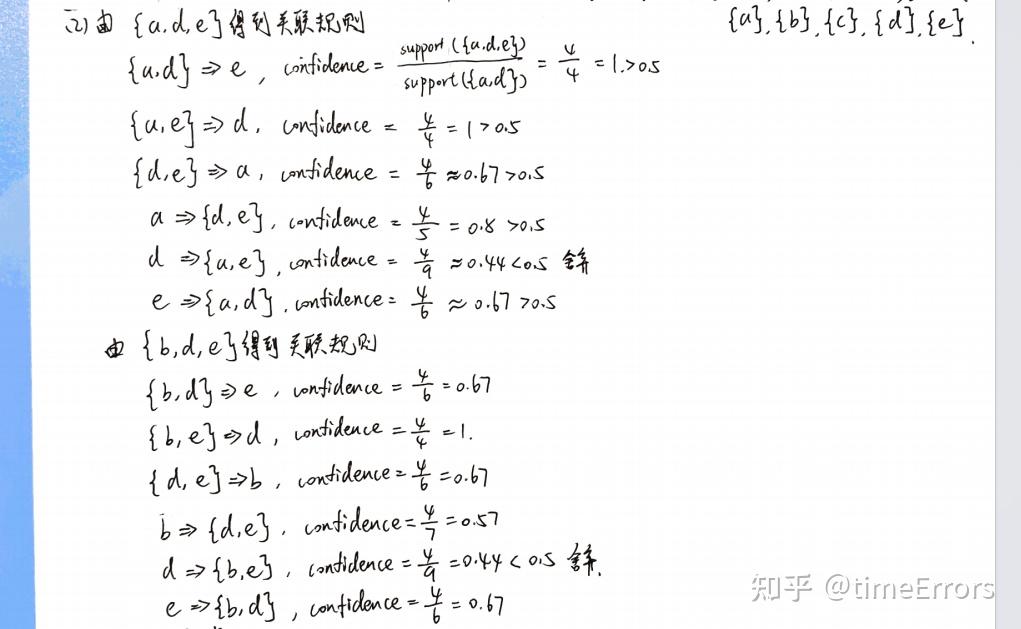 (2) 由 {a,d,e} 得到关联规则
{a}, {b}, {c}, {d}, {e}.
{a,d} ⇒ e, confidence = support({a,d,e}) / support({a,d}) = 4/4 = 1 > 0.5
{a,e} ⇒ d, confidence = 4/4 = 1 > 0.5
{d,e} ⇒ a, confidence = 4/6 ≈ 0.67 > 0.5
a ⇒ {d,e}, confidence = 4/5 = 0.8 > 0.5
d ⇒ {a,e}, confidence = 4/9 ≈ 0.44 < 0.5 舍弃
e ⇒ {a,d}, confidence = 4/6 ≈ 0.67 > 0.5
由 {b,d,e} 得到关联规则
{b,d} ⇒ e, confidence = 4/6 = 0.67
{b,e} ⇒ d, confidence = 4/4 = 1.
{d,e} ⇒ b, confidence = 4/6 = 0.67
b ⇒ {d,e}, confidence = 4/7 = 0.57
d ⇒ {b,e}, confidence = 4/9 = 0.44 < 0.5 舍弃.
e ⇒ {b,d}, confidence = 4/6 = 0.67
知乎 @timeErrors